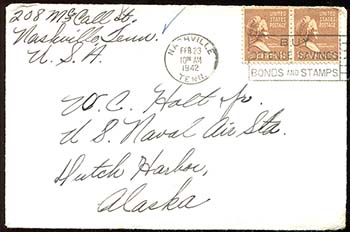 208 McCall St,
Nashville Tenn.
U. S. A.
NASHVILLE
FEB 23
10 AM
1942
TENN.
UNITED STATES POSTAGE
UNITED STATES POSTAGE
BUY
DEFENSE SAVINGS
BONDS AND STAMPS
W. C. Holt Jr.
U S. Naval Air Sta.
Dutch Harbor,
Alaska